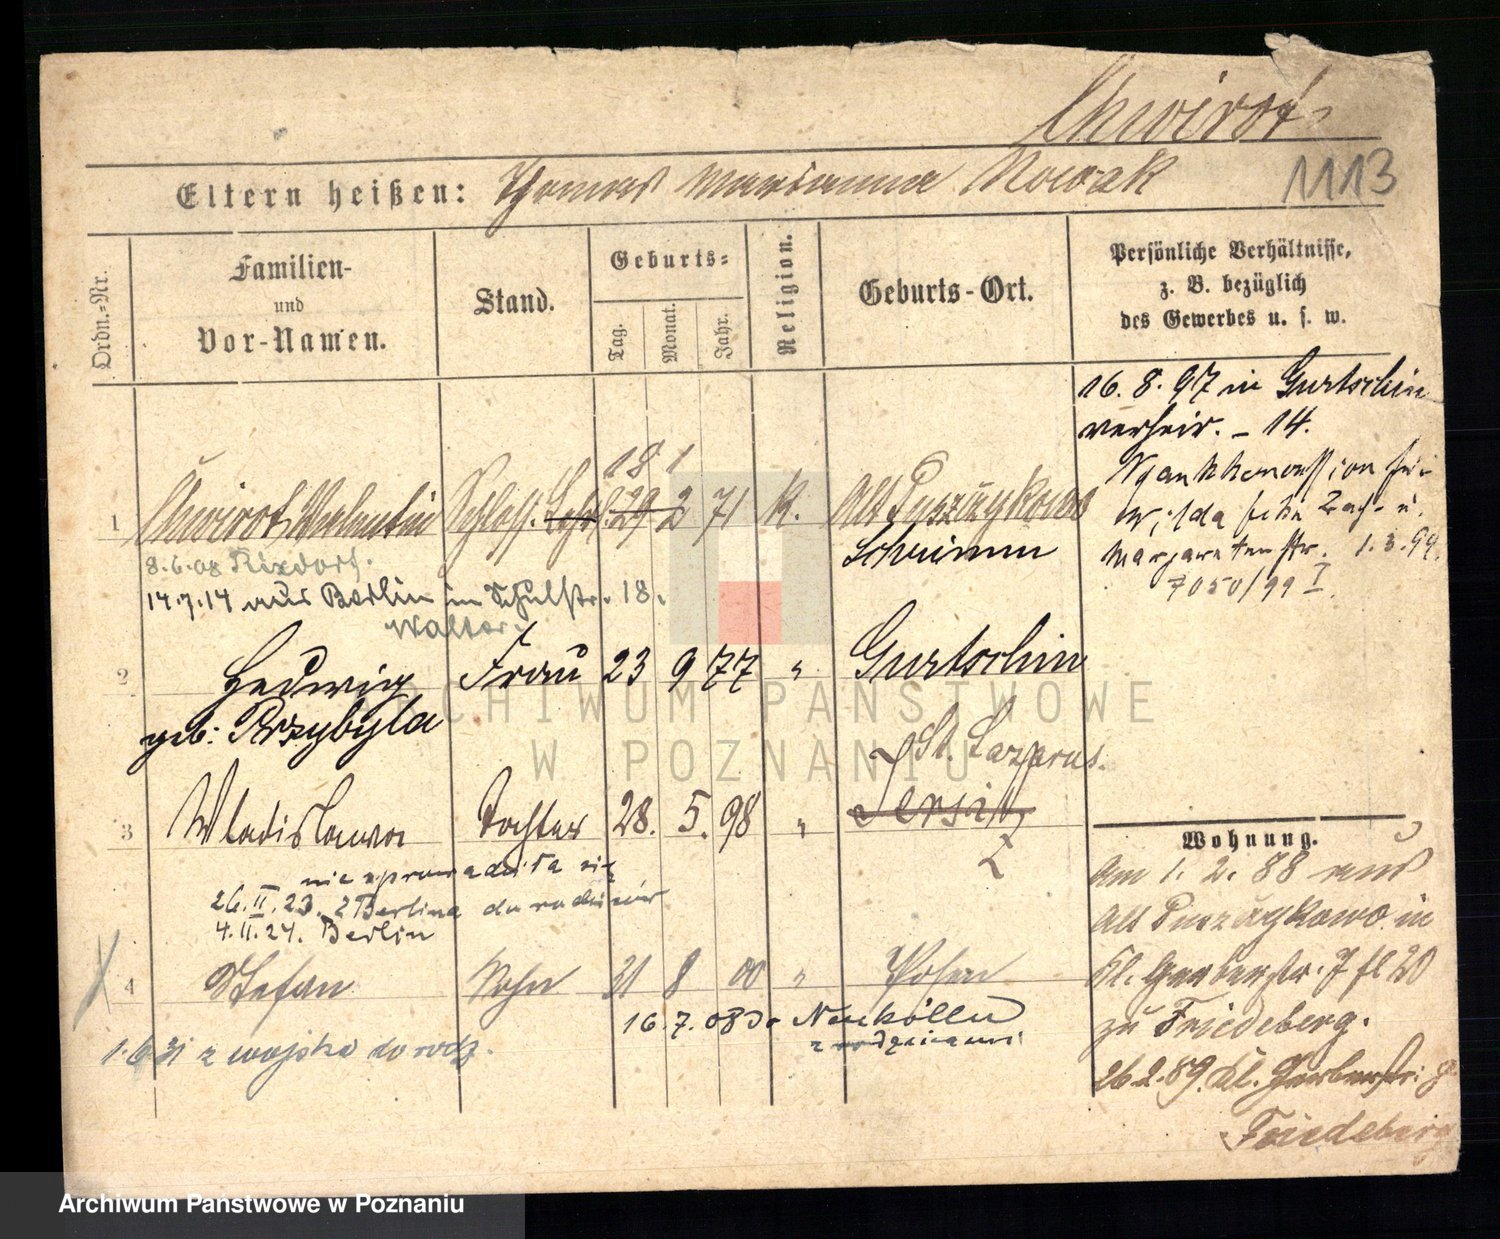 Chwirot
Eltern heißen: Thomas Marianna Nowak
1113
Ordn.-Nr.
Familien-
und
Vor-Namen.
Stand.
Geburts-
Tag.
Monat.
Jahr.
Religion.
Geburts-Ort.
Persönliche Verhältnisse,
z. B. bezüglich
des Gewerbes u. s. w.
16. 8. 97 in Gurtschin
verheir. - 14.
18 1
1 Chwirot Valentin Schloss. Lehrl. 29 2 71 K. Alt Puszczykowo
Schrimm
Wilda
Margaretenstr. 1.3.99.
7050/99 I.
8.6.08 Rixdorf.
14.7.14 aus Berlin in Schulstr. 18.
Walter
2 Hedwig Frau 23 9 77 " Gurtschin
geb: Przybyla
St. Lazarus.
3 Wladislawa Tochter 28. 5. 98 " Jersitz
nie sprowadziła się
26.II.23. z Berlina do rodziców
4.II.24. Berlin
4 Stefan Sohn 31 8 00 " Posen
16.7.08 Neukölln
z rodzicami
1.6.31 z wojska do rodz.
Wohnung.
Am 1. 2. 88 aus
Alt Puszczykowo in
Kl. Gerberstr. 7 fl 20
zu Friedeberg.
26.2.89. Kl. Gerberstr: 8
Friedeberg
ARCHIWUM PAŃSTWOWE
W POZNANIU
Archiwum Państwowe w Poznaniu